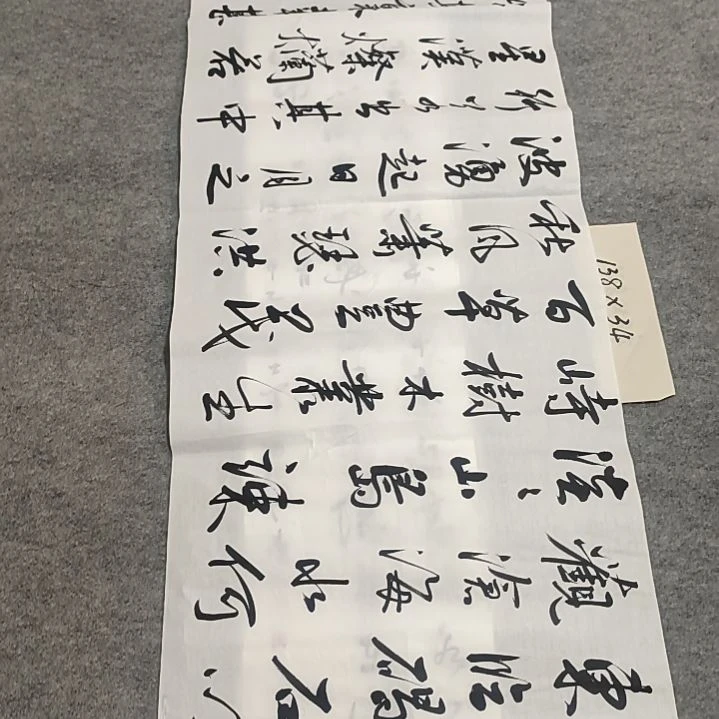 東臨碣石
觀滄海水何
澹澹山島竦
峙樹木叢生
百草豐茂
秋风蕭瑟洪
波湧起日月之
行若出其中
星漢燦爛若
138×34